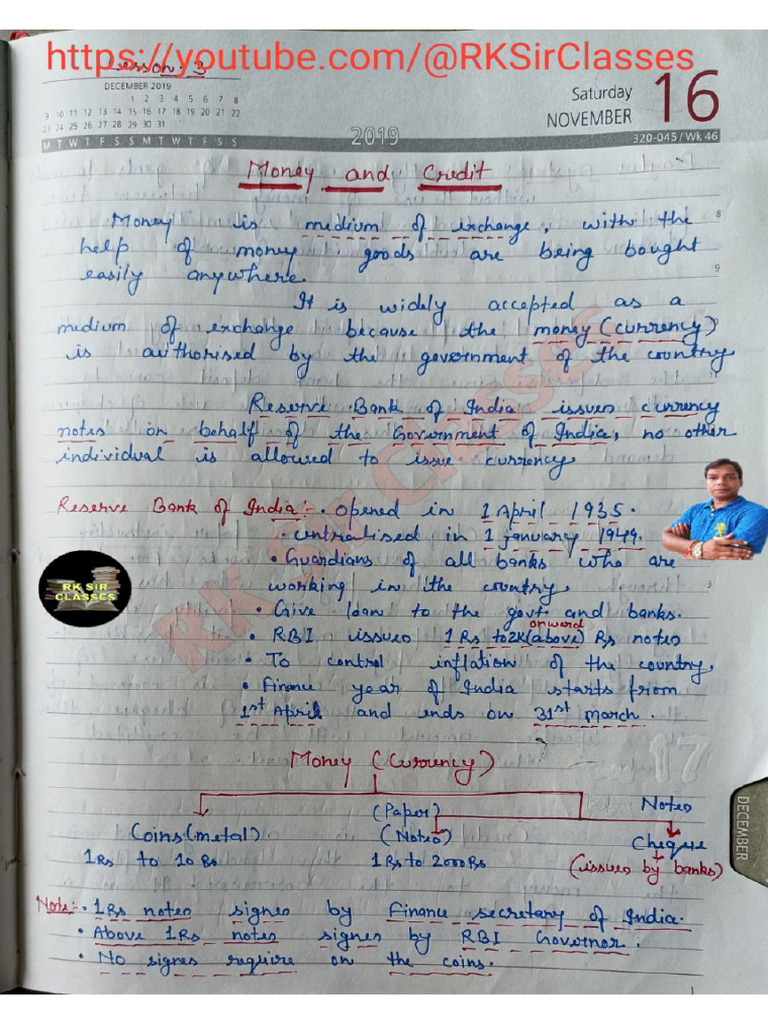 https://youtube.com/@RKSirClasses
Lesson: 3
DECEMBER 2019
1 2 3 4 5 6 7 8
9 10 11 12 13 14 15 16 17 18 19 20 21 22
23 24 25 26 27 28 29 30 31
M T W T F S S M T W T F S S
Saturday
NOVEMBER 16
2019
320-045 / Wk 46
Money and Credit
Money is medium of exchange, with the
help of money goods are being bought
easily anywhere.
It is widely accepted as a
medium of exchange because the money (currency)
is authorised by the government of the country
Reserve Bank of India issues currency
notes on behalf of the Government of India, no other
individual is allowed to issue currency
Reserve Bank of India :- • Opened in 1 April 1935.
• centralised in 1 january 1949.
• Guardians of all banks who are
working in the country
• Give loan to the govt and banks.
onward
• RBI issues 1 Rs to 2K (above) Rs notes
• To control inflation of the country,
• Finance year of India starts from
1st April and ends on 31st March.
RK SIR
CLASSES
RK Sir Classes
17
DECEMBER
Money (Currency)
(Paper) Notes
Coins (metal) (Notes) Cheque
1 Rs to 10 Rs 1 Rs to 2000 Rs (issued by banks)
Note:- • 1 Rs notes signes by Finance secretary of India.
• Above 1 Rs notes signes by RBI Governor.
• No signes require on the coins.
8
9
3